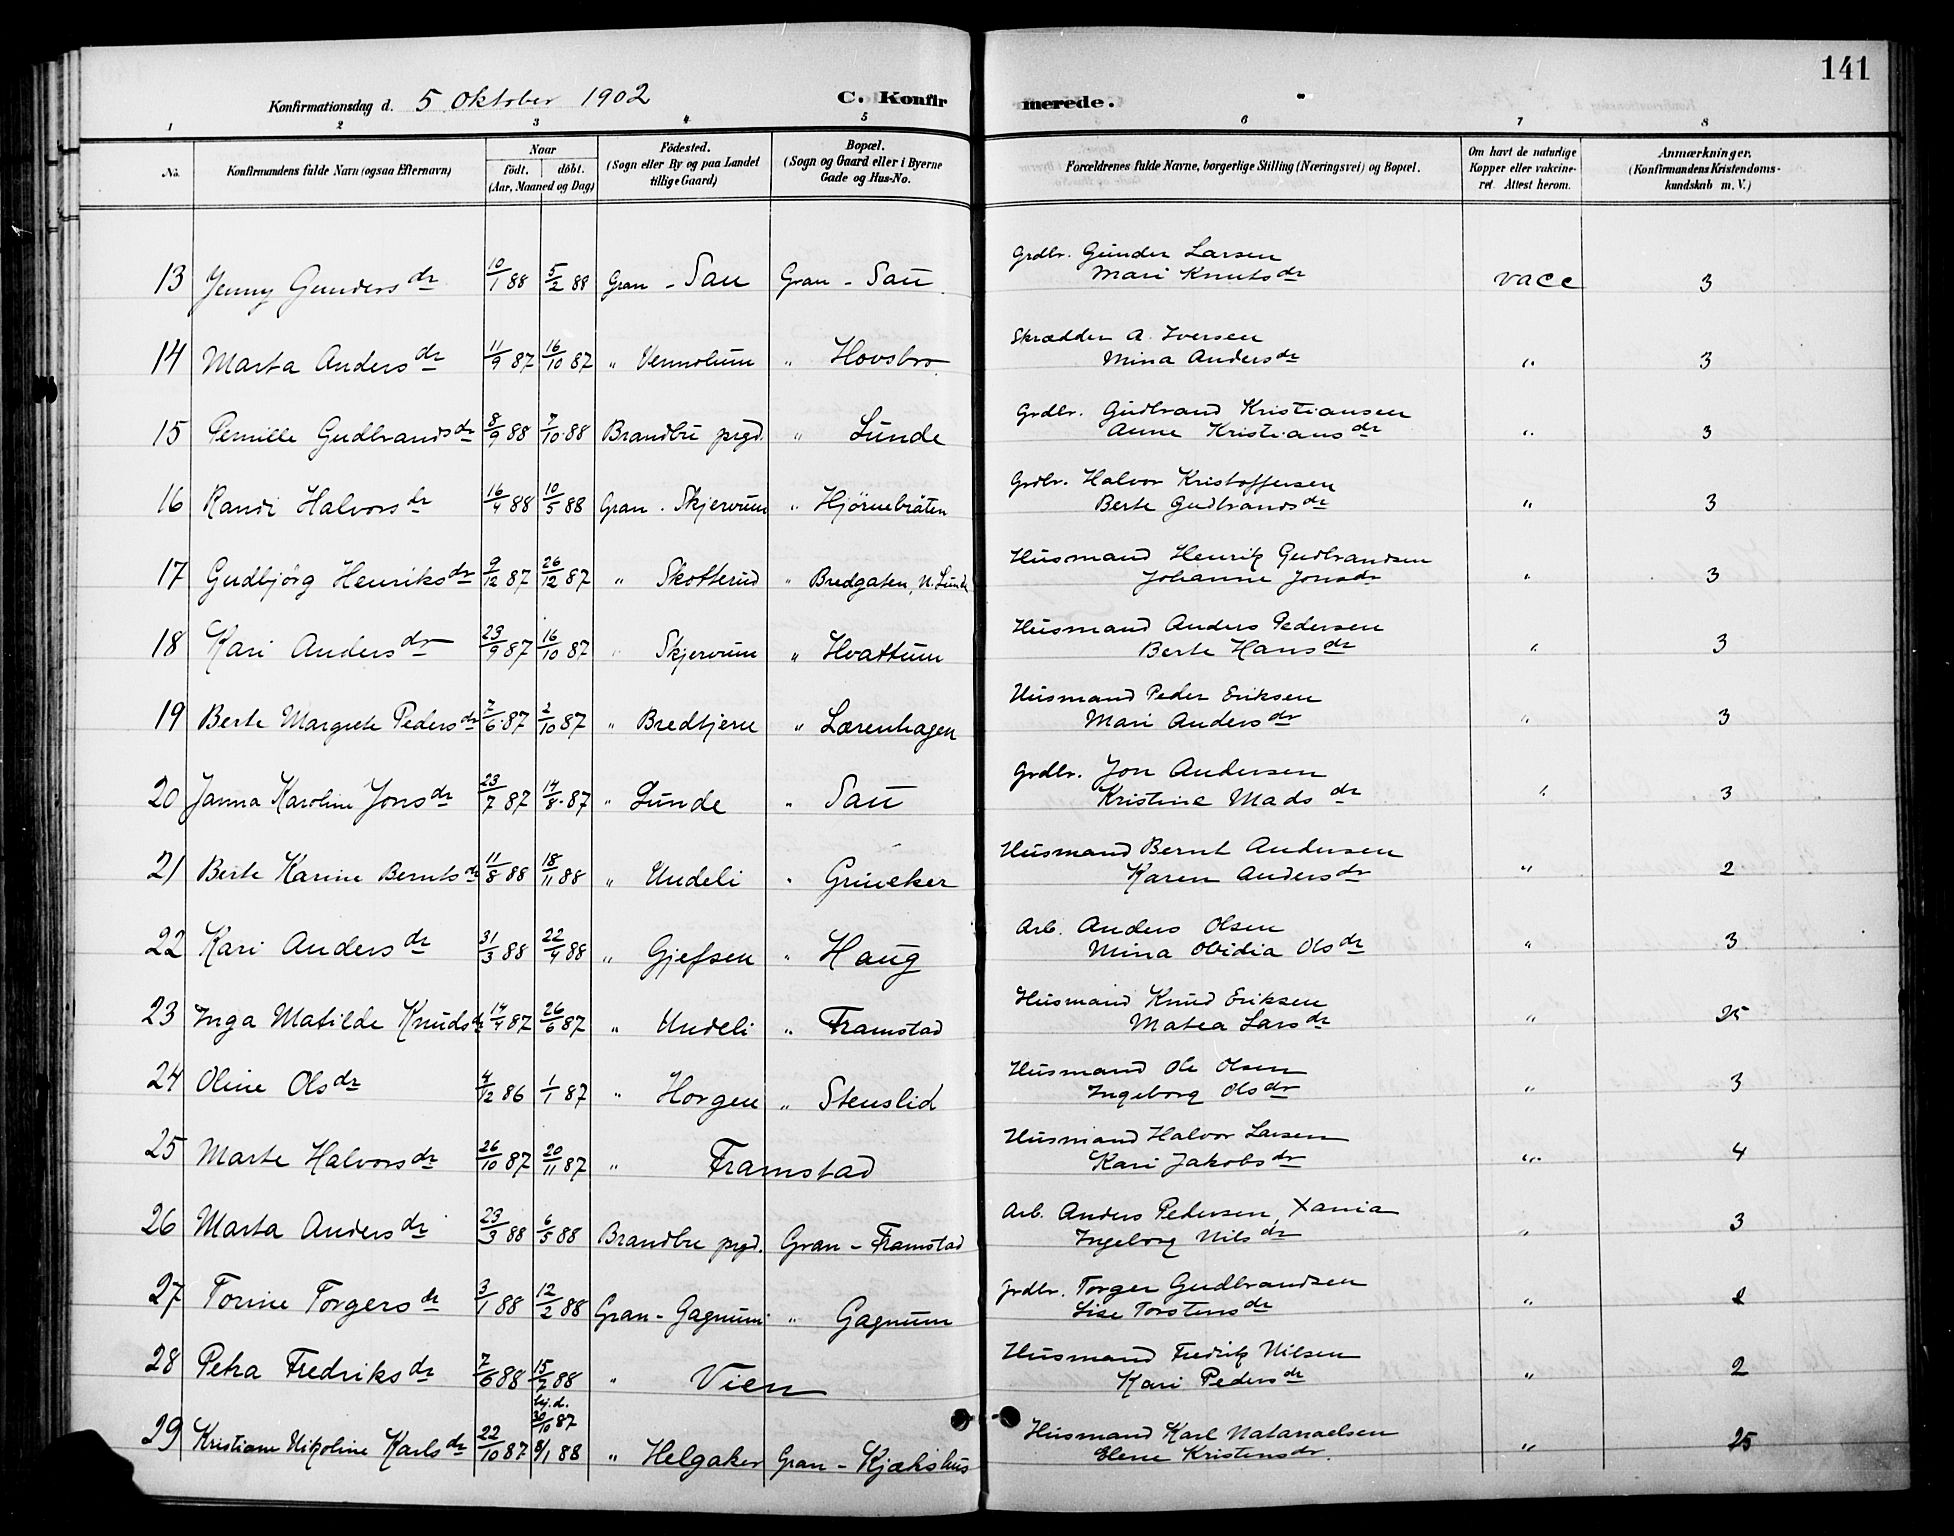 141
Konfirmationsdag d. 5 Oktober 1902 C. Konfirmerede.
1 2 3 4 5 6 7 8
No. Konfirmandens fulde Navn (ogsaa Efternavn) Naar født. døbt. (Aar, Maaned og Dag) Födested. (Sogn eller By og paa Landet tillige Gaard) Bopæl. (Sogn og Gaard eller i Byerne Gade og Hus-No.) Forældrenes fulde Navne, borgerlige Stilling (Næringsvei) og Bopæl. Om havt de naturlige Kopper eller vakcineret. Attest herom. Anmærkninger. (Konfirmandens Kristendomskundskab m. V.)
13 Jenny Gunders dr 10/1 88 5/2 88 Gran - Sau Gran - Sau Grdbr. Gunder Larsen Mari Knuts dr vacc 3
14 Marta Anders dr 11/9 87 16/10 87 " Vennolum " Hovsbro Skrædder A. Iversen Mina Anders dr " 3
15 Pernille Gudbrands dr 8/9 88 7/10 88 Brandbu prgd. " Lunde Grdbr. Gudbrand Kristiansen Anne Kristians dr " 3
16 Randi Halvors dr 16/4 88 10/5 88 Gran - Skjervum " Hjørnebråten Grdbr. Halvor Kristoffersen Berte Gudbrands dr " 3
17 Gudbjørg Henriks dr 9/12 87 26/12 87 " Skotterud " Bredgaten, N. Lunde Husmand Henrik Gudbrandsen Johanne Jonsdr " 3
18 Kari Anders dr 23/9 87 16/10 87 " Skjervum " Hvattum Husmand Anders Pedersen Berte Hans dr " 3
19 Berte Margrete Peders dr 7/6 87 2/10 87 " Bredtjern " Lærenhagen Husmand Peder Eriksen Mari Anders dr " 3
20 Janna Karoline Jons dr 23/7 87 14/8 87 " Lunde " Sau Grdbr. Jon Andersen Kristine Mads dr " 3
21 Berte Karine Bernts dr 11/8 88 18/11 88 " Undeli " Grineker Husmand Bernt Andersen Karen Anders dr " 2
22 Kari Anders dr 31/3 88 22/4 88 " Gjefsen " Haug Arb. Anders Olsen Mina Obidia Ols dr " 3
23 Inga Matilde Knuds dr 14/4 87 26/6 87 " Undeli " Framstad Husmand Knud Eriksen Matea Lars dr " 25
24 Oline Ols dr 4/12 86 1/1 87 " Horgen " Stenslid Husmand Ole Olsen Ingeborg Ols dr " 3
25 Marte Halvors dr 26/10 87 20/11 87 " Framstad Husmand Halvor Larsen Kari Jakobs dr " 4
26 Marta Anders dr 23/3 88 6/5 88 Brandbu prgd. Gran - Framstad Arb. Anders Pedersen, Xania Ingeborg Nils dr " 3
27 Torine Torgers dr 3/1 88 12/2 88 Gran - Gagnum " Gagnum Grdbr. Torger Gudbrandsen Lise Torstens dr "
28 Petra Fredriks dr 7/6 88 15/7 88 " Vien Husmand Fredrik Nilsen Kari Peders dr " 2
29 Kristiane Nikoline Karls dr 22/10 87 hj. d. 30/10 87 8/1 88 " Helgaker Gran - Kjækshus Husmand Karl Natanaelsen Elene Kristensdr. " 25